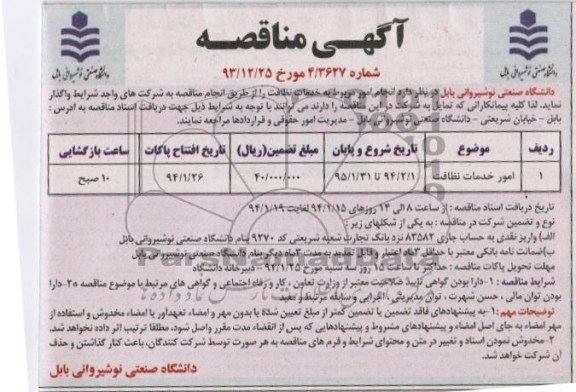 آگهی مناقصه
شماره ۴/۳۶۲۷ مورخ ۹۳/۱۲/۲۵
دانشگاه صنعتی نوشیروانی بابل
دانشگاه صنعتی نوشیروانی بابل
دانشگاه صنعتی نوشیروانی بابل در نظر دارد انجام امور مربوط به خدمات نظافت را از طریق انجام مناقصه به شرکت های واجد شرایط واگذار
نماید. لذا کلیه پیمانکارانی که تمایل به شرکت در این مناقصه را دارند می توانند با توجه به شرایط ذیل جهت دریافت اسناد مناقصه به آدرس :
بابل - خیابان شریعتی - دانشگاه صنعتی نوشیروانی بابل - مدیریت امور حقوقی و قراردادها مراجعه نمایند.
ردیف موضوع تاریخ شروع و پایان مبلغ تضمین(ریال) تاریخ افتتاح پاکات ساعت بازگشایی
۱ امور خدمات نظافت ۹۴/۲/۱ تا ۹۵/۱/۳۱ ۴۰/۰۰۰/۰۰۰ ۹۴/۱/۲۶ ۱۰ صبح
تاریخ دریافت اسناد مناقصه : از ساعت ۸ الی ۱۴ روزهای ۹۴/۱/۱۵ لغایت ۹۴/۱/۱۹
نوع و تضمین شرکت در مناقصه : به یکی از شکلهای زیر :
الف) واریز نقدی به حساب جاری ۸۳۵۸۲ نزد بانک تجارت شعبه شریعتی کد ۹۲۷۰ بنام دانشگاه صنعتی نوشیروانی بابل
ب)ضمانت نامه بانکی معتبر با حداقل ۳ماه اعتبار و قابل تمدید به مدت ۳ماه دیگر بنام دانشگاه صنعتی نوشیروانی بابل
مهلت تحویل پاکات مناقصه : حداکثر تا ساعت ۱۴ روز سه شنبه مورخ ۹۴/۱/۲۵ - دبیرخانه دانشگاه
شرایط مناقصه : ۱-دارا بودن گواهی تایید صلاحیت معتبر از وزارت تعاون ، کار و رفاه اجتماعی و گواهی های مرتبط با موضوع مناقصه ۲-دارا
بودن توان مالی ، حسن شهرت ، توان مدیریتی ، اجرایی و سابقه مرتبط و مفید
توضیحات مهم : ۱-به پیشنهادهای فاقد تضمین یا تضمین کمتر از مبلغ تعیین شده یا بدون مهر و امضاء تعهدآور یا امضاء مخدوش و استفاده از
مهر امضاء به جای اصل امضاء و پیشنهادهای مشروط و پیشنهادهایی که پس از انقضاء مدت مقرر واصل شود، مطلقا ترتیب اثر داده نخواهد شد.
۲-مخدوش نمودن اسناد و تغییر در متن و محتوای شرایط و فرم های مناقصه به هر صورت توسط شرکت کنندگان، باعث کنار گذاشتن و حذف
آن شرکت خواهد شد.
دانشگاه صنعتی نوشیروانی بابل